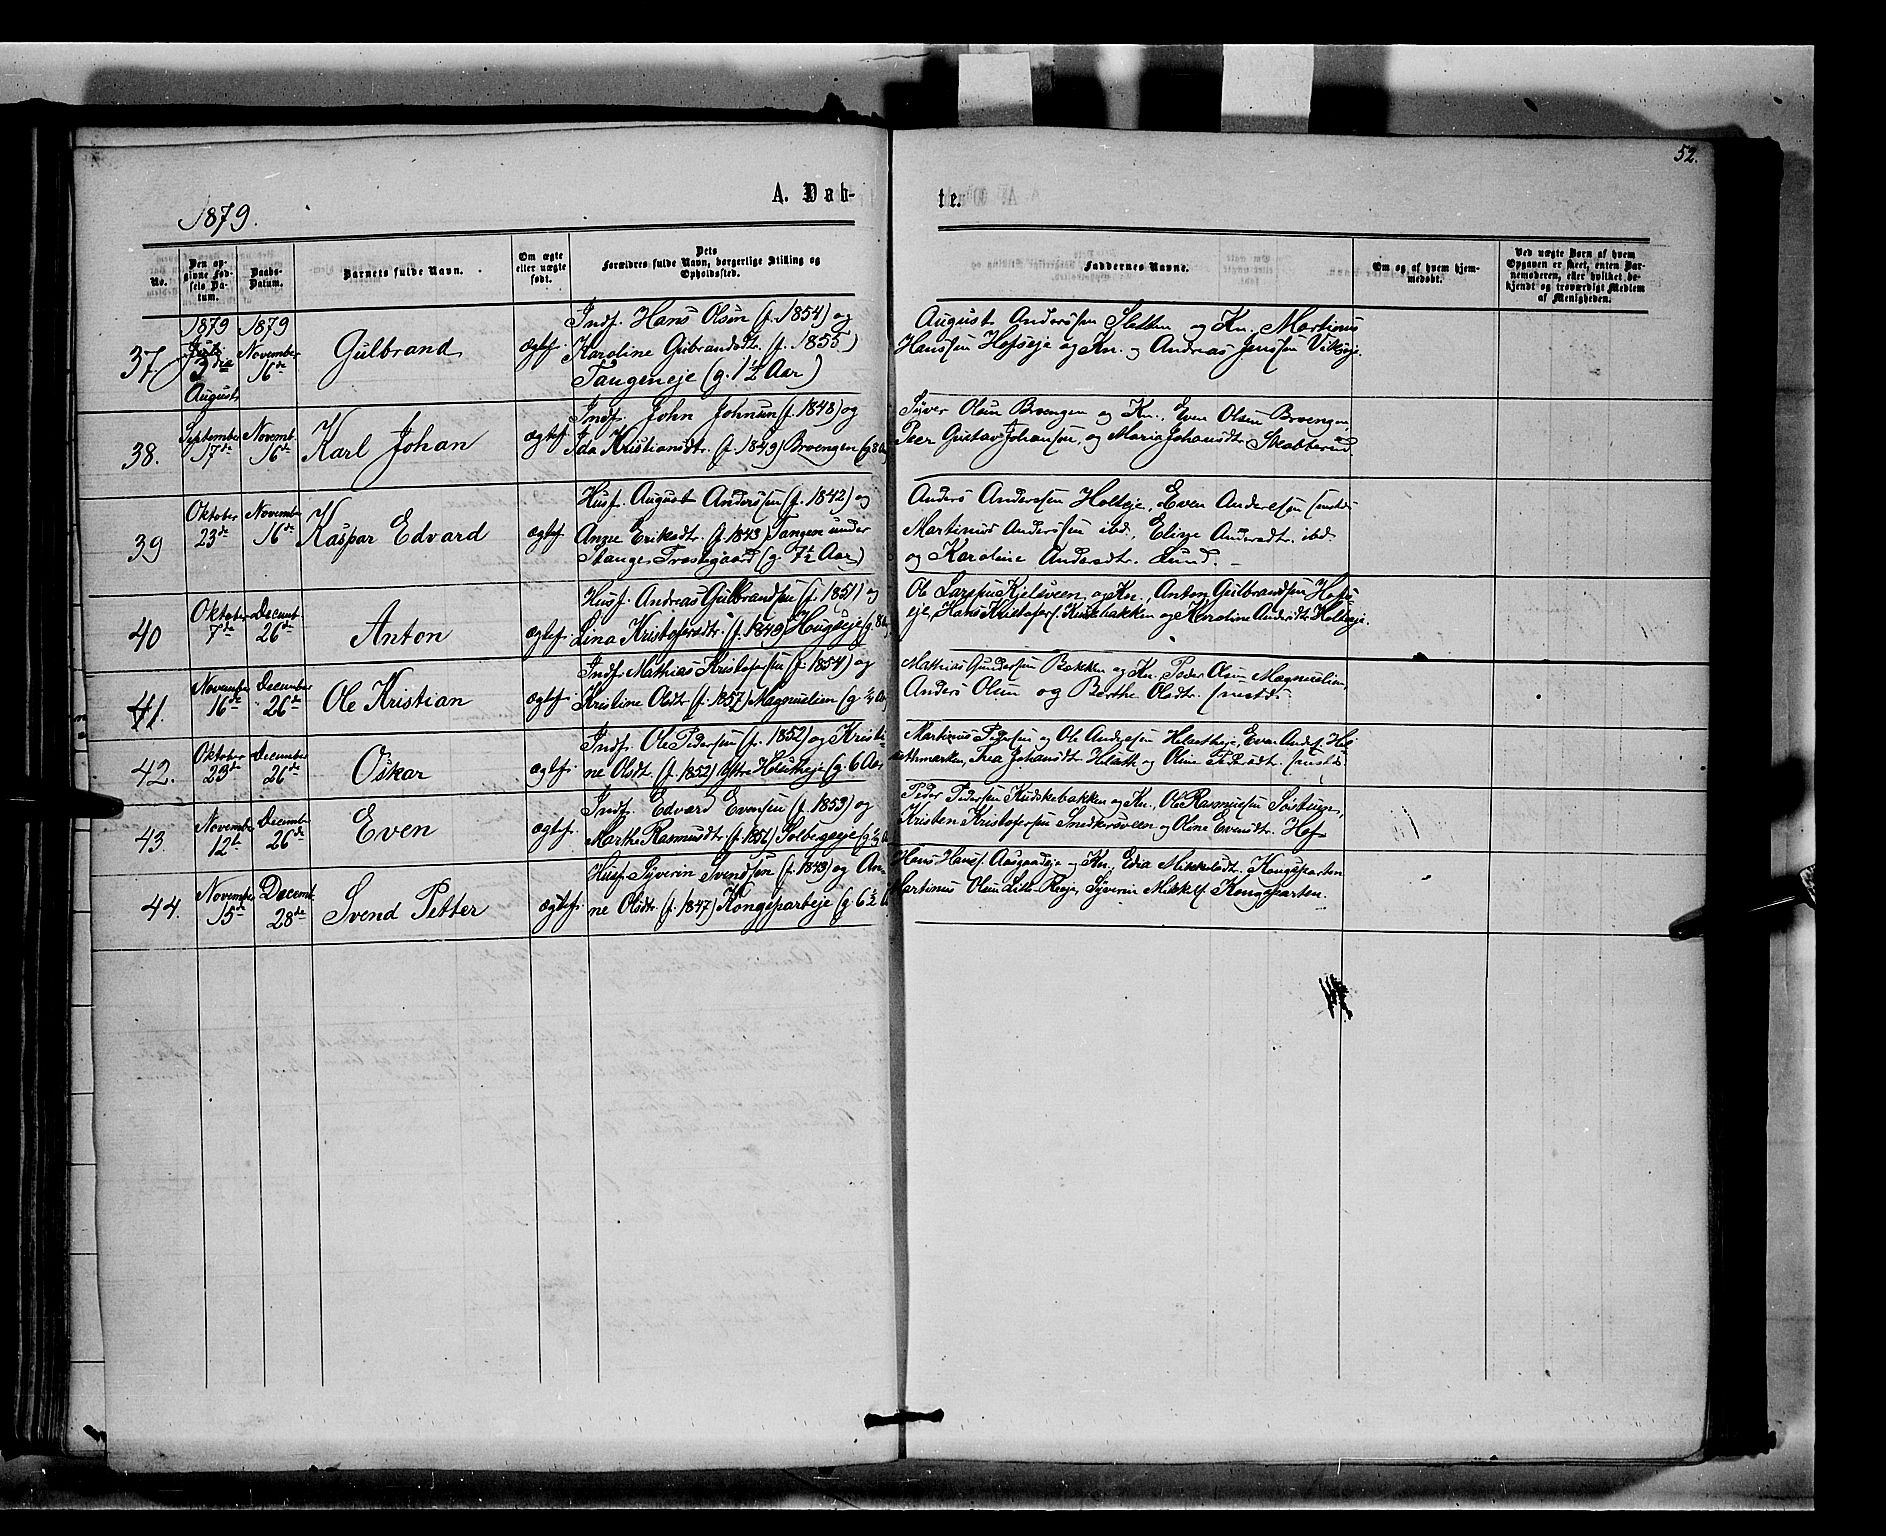 52.
A. Døb-
te.
1879.
No.
Den op-
givne Fød-
sels Da-
tum.
Daabs-
Datum.
Barnets fulde Navn.
Om ægte
eller uægte
født.
Dets
Forældres fulde Navn, borgerlige Stilling og
Opholdssted.
Faddernes Navne.
Om og af hvem hjem-
medøbt.
Ved uægte Børn af hvem
Opgaven er skeet, enten Bar-
nemoderen, eller hvilket be-
kjendt og troværdigt Medlem
af Menigheden.
37
1879
Juli
3die
August
1879
November
16de
Gulbrand
ægtef.
Indf. Hans Olsen (f. 1854) og
Karoline Gulbrandsdtr. (f. 1855)
Tangeneje (g. 1½ Aar)
August Andersen Sletten og Kn. Martinus
Hanssen Hofseje og Kn. og Andreas Jenssen Vikseje.
38.
September
17de
Novemb.
16de
Karl Johan
ægtef.
Indf. John Johnsen (f. 1848) og
Ida Kristiansdtr. (f. 1849) Broengen (g. 8 Aar)
Syver Olsen Broengen og Kn., Even Olsen Broengen,
Peer Gustav Johansen, og Maria Johansdtr. Skabberud.
39
Oktober
23de
Novemb.
16de
Kaspar Edvard
ægtef.
Husf. August Andersen (f. 1842) og
Anne Eriksdtr. (f. 1843) Tangen under
Stange Præstegaard (g. 7½ Aar)
Anders Anderssen Holteje, Even Anderssen smsteds
Martinus Andersen ibd., Elise Andersdtr. ibd.
og Karoline Andersdtr. Lund.
40
Oktober
7de
Decemb.
26de
Anton
ægtef.
Husf. Andreas Gulbrandsen (f. 1851) og
Lina Kristofersdtr. (f. 1849) Haugseje (g. 8 Aar)
Ole Larssen Kjelsveen og Kn., Anton Gulbrandsen Hofs-
eje, Hans Kristofers. Kuskebakken og Karoline Andersdtr. Holteje.
41.
November
16de
December
26de
Ole Kristian
ægtef.
Indf. Mathias Kristofersen (f. 1854) og
Kristine Olsdtr. (f. 1857) Magnuslien
Mathias Gundersen Bækken og Kn. Peder Olsen Magnuslien,
Anders Olsen og Berthe Olsdtr. smstds.
42.
Oktober
23de
December
26de
Oskar
ægtef.
Indf. Ole Pedersen (f. 1852) og Kristi-
ne Olsdtr. (f. 1852) (g. 6 Aar
Martinus Pedersen og Ole Andersen Even Anders.
Thea Johansdt. og Oline Pedersdt. smstds.
43.
November
12te
December
26de
Even
ægtef.
Indf. Edvard Evensen (f. 1853) og
Marthe Rasmusdt. (f. 1856) Solbergseje
Peder Pedersen Kuskebakken og Kn., Ole Rasmussen
Kristen Kristofersen Snekkersveen og Oline Evensdt. Hof.
44.
November
15de
Decemb.
28de
Svend Petter
ægtef.
Husf. Syverin Svendsen (f. 1849) og An-
ne Olsdtr. (f. 1847) Kongsparteje (g. 6½
Hans Hans. Aasgaardseje og Kn. Edia Mikkelsdt. Kongsparten
Martinus Olsen Syverin Mikkels. Kongsparten.